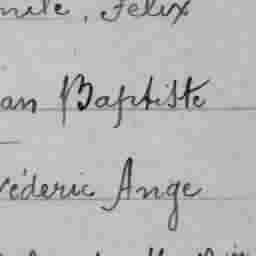 , Felix
an Baptiste
réderic Ange